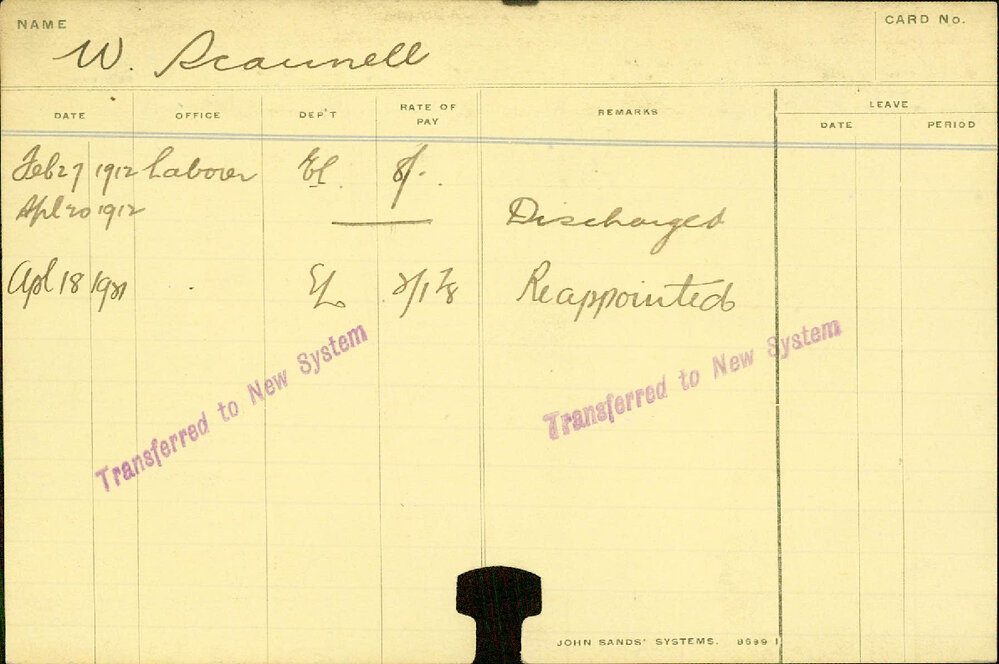 NAME
CARD No.
W. Scannell
DATE OFFICE DEP'T RATE OF PAY REMARKS LEAVE
DATE PERIOD
Feb 27 1912 Laborer El. 8/-.
Apl 20 1912 Discharged
Apl 18 1921 E/L Reappointed
Transferred to New System
Transferred to New System
JOHN SANDS' SYSTEMS.